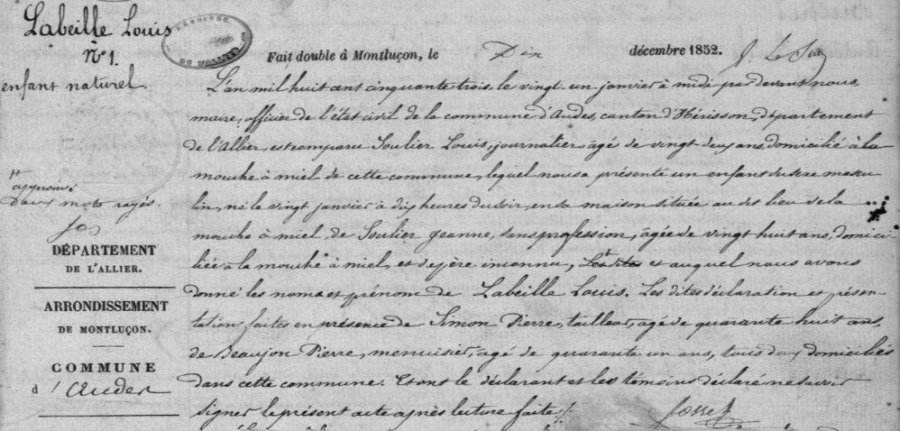 Labeille Louis
N° 1.
enfant naturel
Fait double à Montluçon, le Dix décembre 1852.
L'an mil huit cent cinquante trois, le vingt un janvier à midi par devant nous,
maire, officier de l'état civil de la commune d'Audes, canton d'Hérisson, département
de l'Allier, est comparu Soulier Louis, journalier, agé de vingt deux ans, domicilié à la
mouche à miel de cette commune, lequel nous a présenté un enfant du sexe mascu-
lin, né le vingt janvier à dix heures du soir, en sa maison située au dit lieu de la
mouche à miel, de Soulier Jeanne, sans profession, agée de vingt huit ans, domici-
liée à la mouche à miel, et de père inconnu, et auquel nous avons
donné les noms et prénom de Labeille Louis. Les dites déclaration et présen-
tation faites en présence de Simon Pierre, tailleur, agé de quarante huit ans,
de Beaujon Pierre, menuisier, agé de quarante un ans, tous deux domiciliés
dans cette commune. Et ont le déclarant et les témoins déclaré ne savoir
signer le présent acte après lecture faite.
approuvé
deux mots rayés.
DÉPARTEMENT
DE L'ALLIER.
ARRONDISSEMENT
DE MONTLUÇON.
COMMUNE
d'Audes